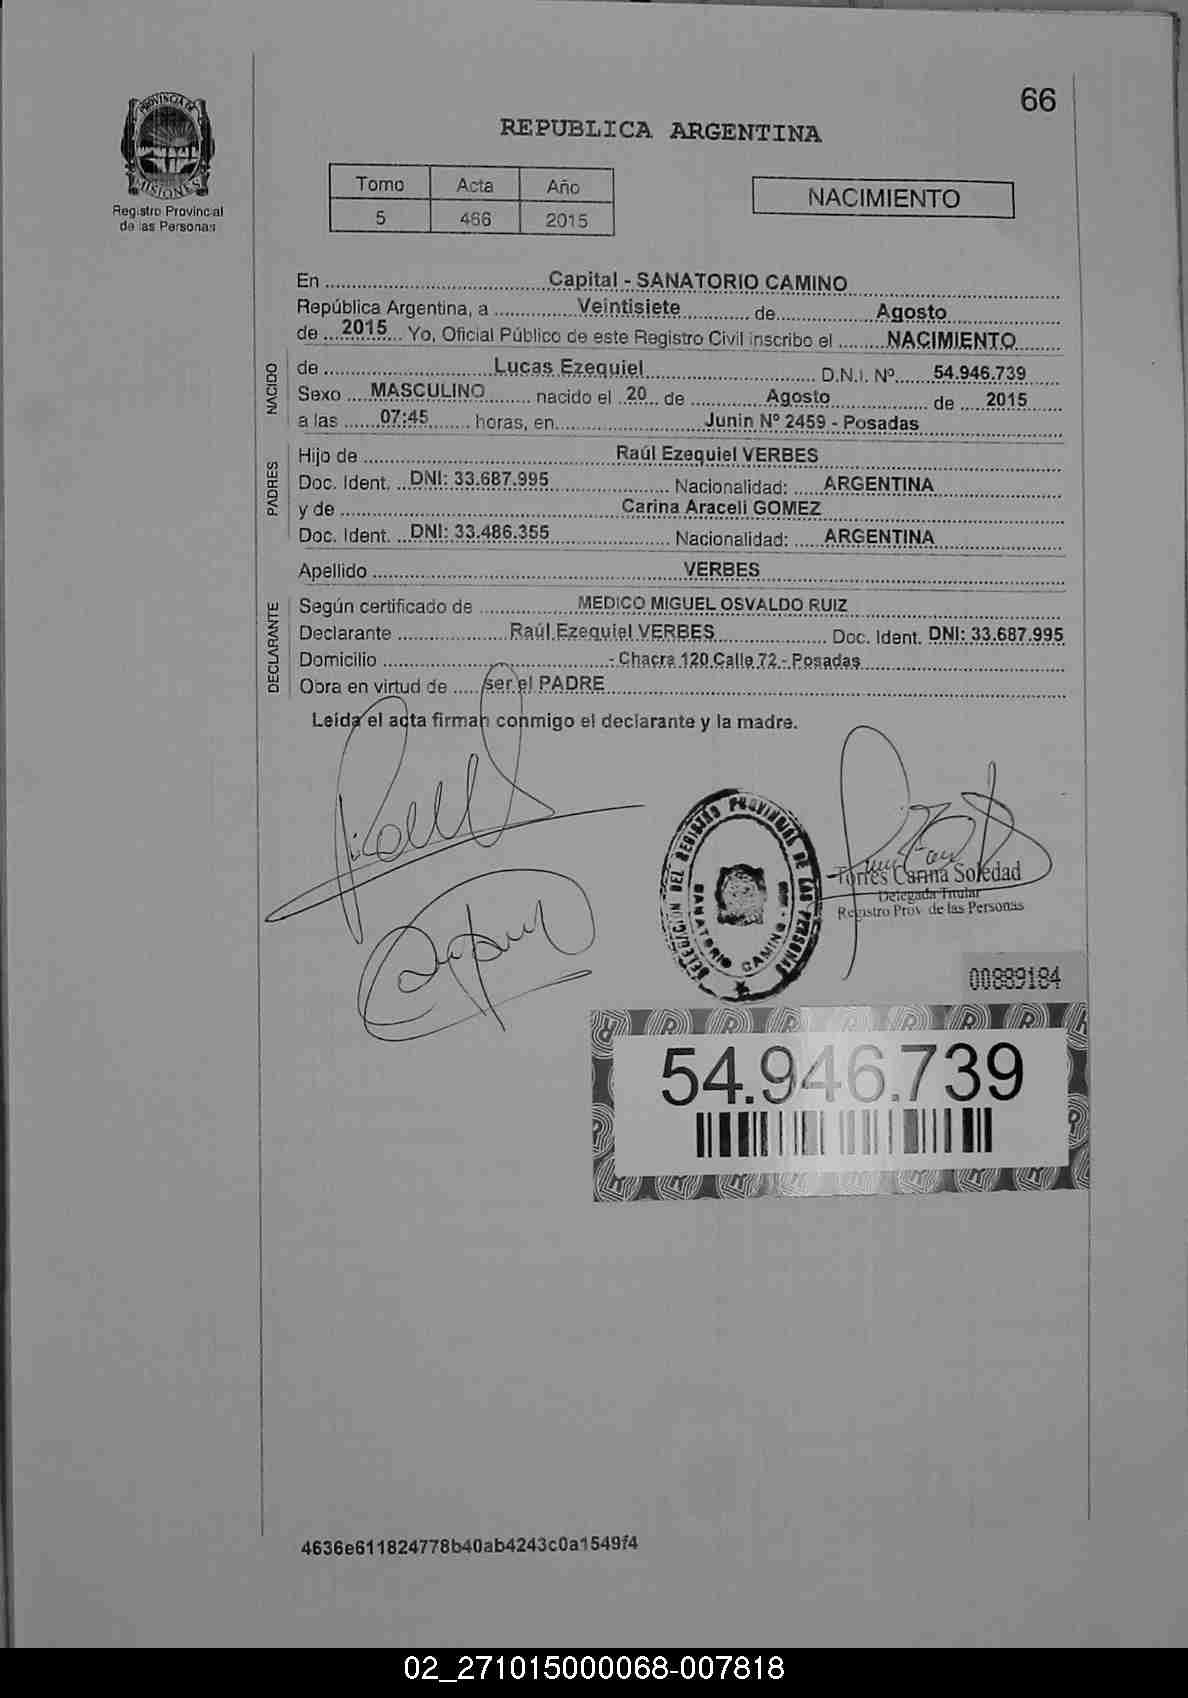 66
PROVINCIA DE
MISIONES
Registro Provincial
de las Personas
REPUBLICA ARGENTINA
Tomo Acta Año
5 466 2015
NACIMIENTO
En ........ Capital - SANATORIO CAMINO ........
República Argentina, a ........ Veintisiete ........ de ........ Agosto ........
de .... 2015 .... Yo, Oficial Público de este Registro Civil inscribo el ........ NACIMIENTO ........
NACIDO
de ........ Lucas Ezequiel ........ D.N.I. Nº ........ 54.946.739 ........
Sexo .... MASCULINO ........ nacido el .. 20 .. de ........ Agosto ........ de .... 2015 ........
a las ...... 07:45 ........ horas, en ........ Junin Nº 2459 - Posadas ........
PADRES
Hijo de ........ Raúl Ezequiel VERBES ........
Doc. Ident. .. DNI: 33.687.995 ........ Nacionalidad: ..... ARGENTINA ........
y de ........ Carina Araceli GOMEZ ........
Doc. Ident. .. DNI: 33.486.355 ........ Nacionalidad: ..... ARGENTINA ........
Apellido ........ VERBES ........
DECLARANTE
Según certificado de ........ MEDICO MIGUEL OSVALDO RUIZ ........
Declarante ........ Raúl Ezequiel VERBES ........ Doc. Ident. DNI: 33.687.995
Domicilio ........ - Chacra 120 Calle 72 - Posadas ........
Obra en virtud de ..... ser el PADRE ........
Leída el acta firman conmigo el declarante y la madre.
DELEGACION DEL REGISTRO PROVINCIAL DE LAS PERSONAS
SANATORIO CAMINO
Torres Carina Soledad
Delegada Titular
Registro Prov. de las Personas
00889184
54.946.739
4636e611824778b40ab4243c0a1549f4
02_271015000068-007818